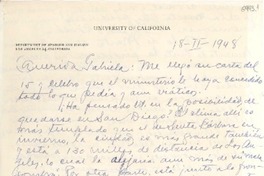 UNIVERSITY OF CALIFORNIA
DEPARTMENT OF SPANISH AND ITALIAN
LOS ANGELES 24, CALIFORNIA
18-II-1948
Querida Gabriela: Me llegó su carta del
15 y celebro que el ministerio le haya concedido
todo lo que pedía y aun viático.
¿Ha pensado Ud. en la posibilidad de
quedarse en San Diego? El clima allí es
más templado y en
invierno. La ciudad es más grande
y está a 120 millas de distancia de Los Ange-
les, lo cual la alejaría aun más de su
. Por otra parte, está junto a la fron-